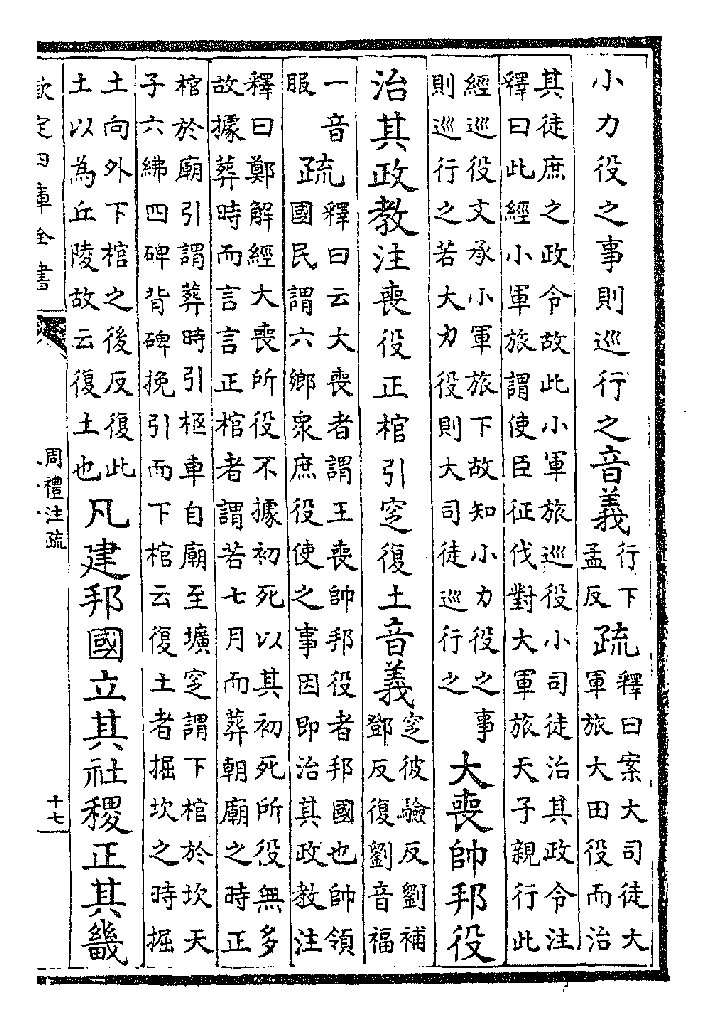 小力役之事則巡行之音義行下孟反疏釋曰案大司徒大軍旅大田役而治
其徒庶之政令故此小軍旅巡役小司徒治其政令注
釋曰此經小軍旅謂使臣征伐對大軍旅天子親行此
經巡役文承小軍旅下故知小力役之事
則巡行之若大力役則大司徒巡行之
大喪帥邦役
治其政教注喪役正棺引窆復土音義窆彼驗反劉補鄧反復劉音福
一音服疏釋曰云大喪者謂王喪帥邦役者邦國也帥領
國民謂六鄉衆庶役使之事因即治其政教注
釋曰鄭解經大喪所役不據初死以其初死所役無多
故據葬時而言言正棺者謂若七月而葬朝廟之時正
棺於廟引謂葬時引柩車自廟至壙窆謂下棺於坎天
子六綍四碑背碑挽引而下棺云復土者掘坎之時掘
土向外下棺之後反復此
土以為丘陵故云復土也
凡建邦國立其社稷正其畿
欽定四庫全書
周禮注疏
十七